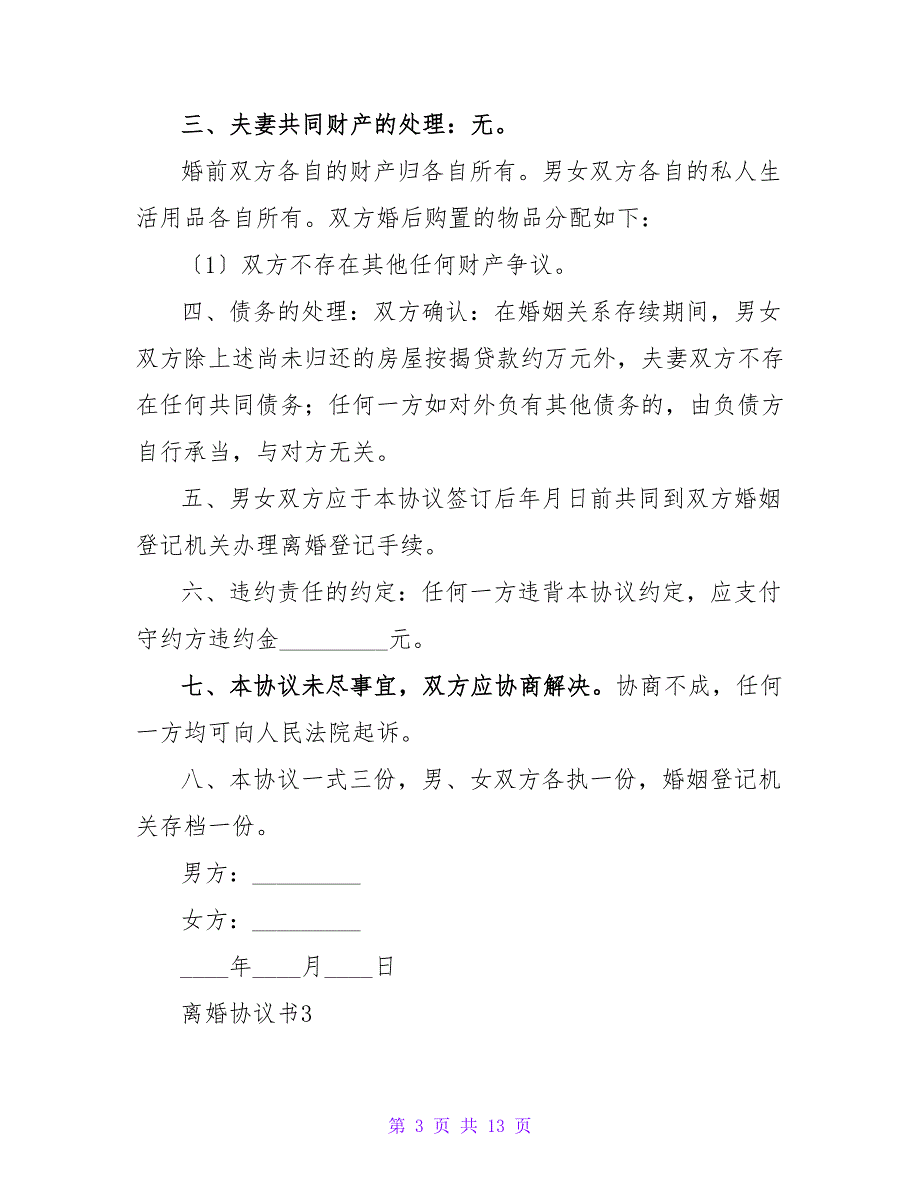 三、夫妻共同财产的处理：无。
婚前双方各自的财产归各自所有。男女双方各自的私人生
活用品各自所有。双方婚后购置的物品分配如下：
〔1〕双方不存在其他任何财产争议。
四、债务的处理：双方确认：在婚姻关系存续期间，男女
双方除上述尚未归还的房屋按揭贷款约万元外，夫妻双方不存
在任何共同债务；任何一方如对外负有其他债务的，由负债方
自行承当，与对方无关。
五、男女双方应于本协议签订后年月日前共同到双方婚姻
登记机关办理离婚登记手续。
六、违约责任的约定：任何一方违背本协议约定，应支付
守约方违约金_________元。
七、本协议未尽事宜，双方应协商解决。协商不成，任何
一方均可向人民法院起诉。
八、本协议一式三份，男、女双方各执一份，婚姻登记机
关存档一份。
男方：_________
女方：_________
____年____月____日
离婚协议书3
第 3 页 共 13 页